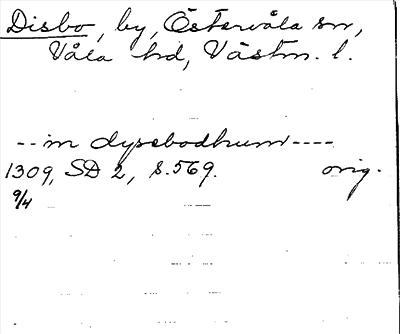 Disbo, by, Östervåla sn,
Våla hd, Västm. l.
-- in dysebodhum ----
1309, SD 2, s. 569. orig.
9/4